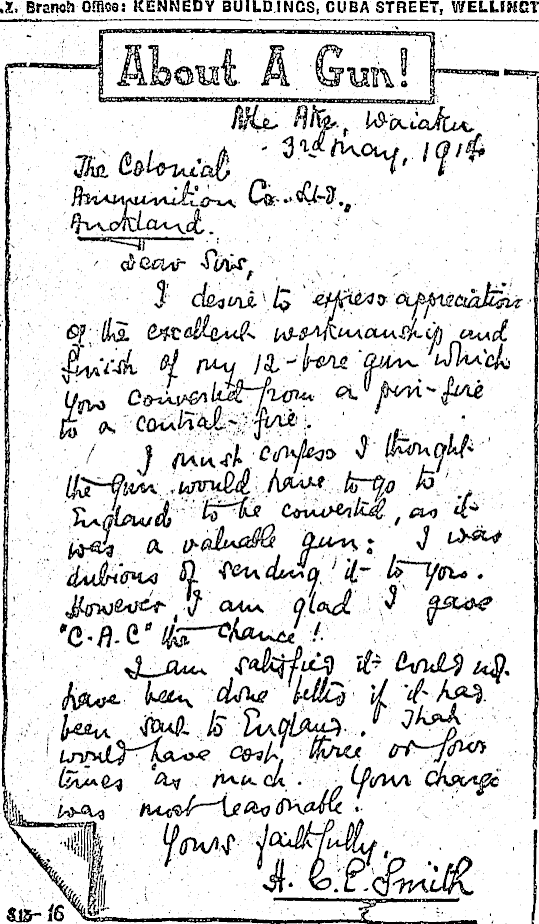 .Z. Branch Office: KENNEDY BUILDINGS, CUBA STREET, WELLINGT
About A Gun!
Ake Ake, Waiuku
3rd May, 1914
The Colonial
Ammunition Co. Ltd.,
Auckland.
Dear Sirs,
I desire to express appreciation
of the excellent workmanship and
finish of my 12-bore gun which
you converted from a pin-fire
to a central-fire.
I must confess I thought
the gun would have to go to
England to be converted, as it
was a valuable gun: I was
dubious of sending it to you.
However, I am glad I gave
"C.A.C" the chance!
I am satisfied it could not
have been done better if it had
been sent to England. That
would have cost three or four
times as much. Your charge
was most reasonable.
Yours faithfully,
H. C. E. Smith
S13-16